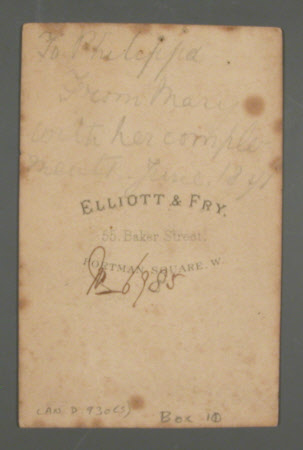 To Philippa
From Mary
with her compli-
ments. June. 1871
ELLIOTT & FRY.
55, Baker Street,
PORTMAN SQUARE, W.
6985
Box 10